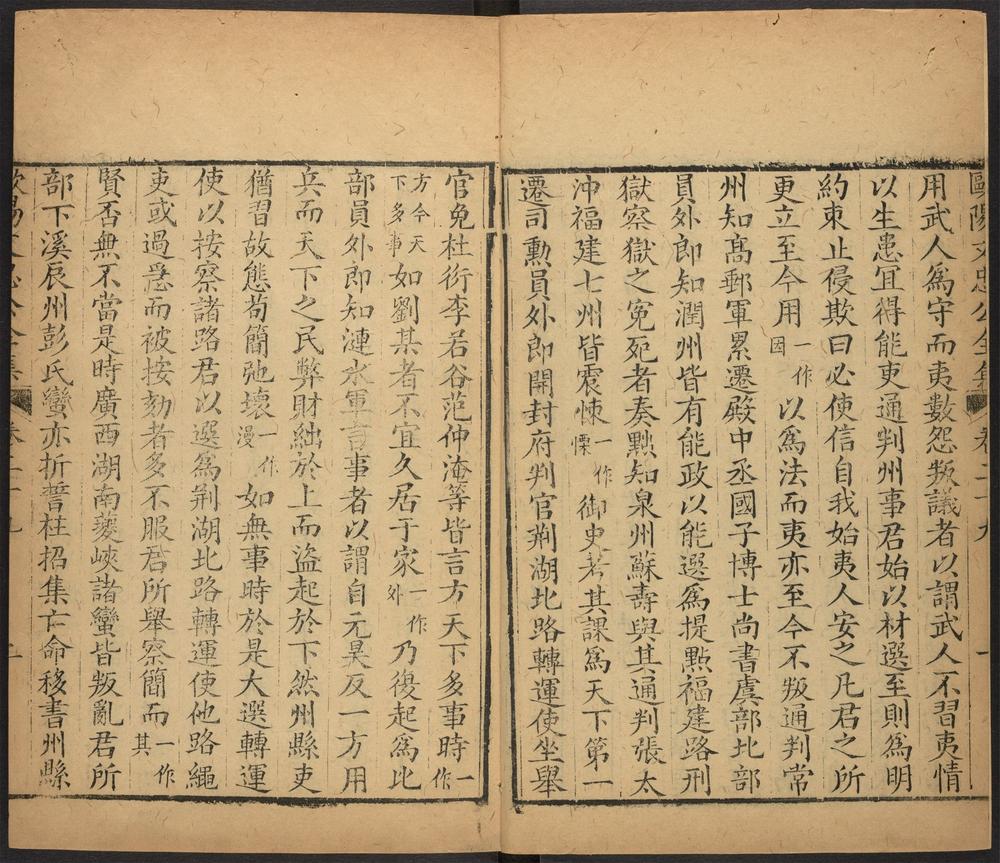 歐陽文忠公全集　卷二十九　一
用武人為守而夷數怨叛議者以謂武人不習夷情
以生患宜得能吏通判州事君始以材選至則為明
約束止侵欺曰必使信自我始夷人安之凡君之所
更立至今用一作因以為法而夷亦至今不叛通判常
州知髙郵軍累遷殿中丞國子博士尚書虞部比部
員外郎知潤州皆有能政以能選為提㸃福建路刑
獄察獄之寃死者奏黥知泉州蘇壽與其通判張太
沖福建七州皆震悚一作慄御史考其課為天下第一
遷司勲員外郎開封府判官荆湖北路轉運使坐舉
官免杜衍李若谷范仲淹等皆言方天下多事時一作
方今天下多事如劉某者不宜久居于家一作外乃復起為比
部員外郎知漣水軍言事者以謂自元昊反一方用
兵而天下之民弊財絀於上而盜起於下然州縣吏
猶習故態苟簡弛壞一作漫如無事時於是大選轉運
使以按察諸路君以選為荆湖北路轉運使他路繩
吏或過急而被按劾者多不服君所舉察簡而一作其
賢否無不當是時廣西湖南夔峽諸蠻皆叛亂君所
部下溪辰州彭氏蠻亦折誓柱招集亡命移書州縣